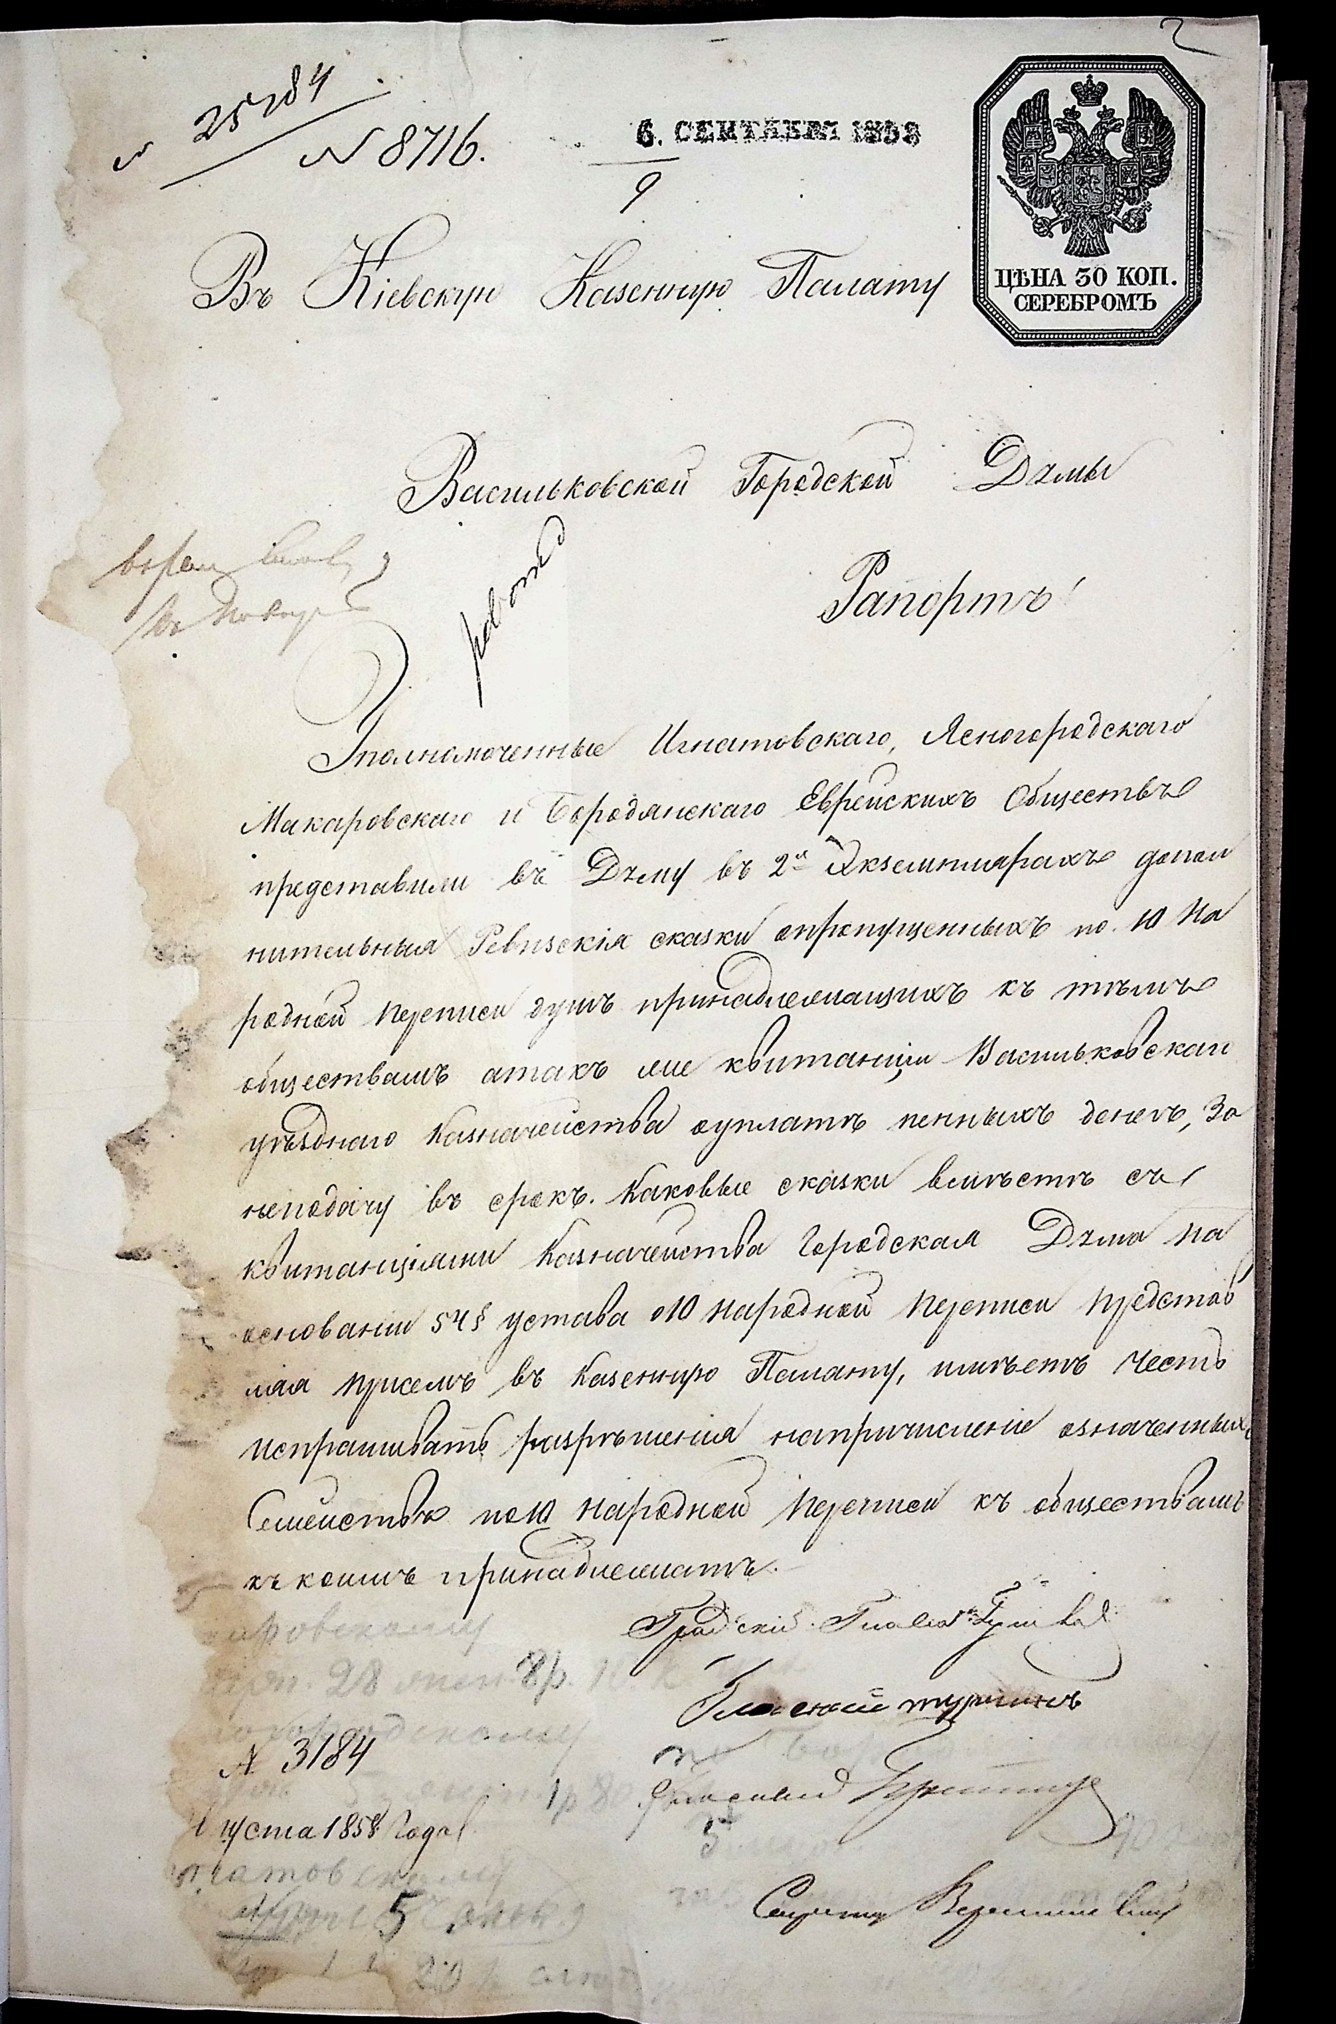 2
№ 25284
№ 8716.
6. СЕНТЯБРЯ 1858
9
ЦѢНА 30 КОП.
СЕРЕБРОМЪ
Въ Кіевскую Казенную Палату
Васильковской Городской Думы
Рапортъ
Уполномоченные Игнатовскаго, Ясногородскаго
Макаровскаго и Бородянскаго Еврейскихъ Обществъ
представили въ Думу въ 2хъ Экземплярахъ допол
нительныя Ревизскія сказки опропущенныхъ по 10 На
родной Переписи душъ принадлежащихъ къ тѣмъ
обществамъ атакъ же квитанціи Васильковскаго
уѣзднаго Казначейства оуплатѣ пенныхъ денегъ, За
неподачу въ срокъ. Каковые сказки вмѣстѣ съ
квитанціями Казначейства Городская Дума на
основаніи 54 § устава о 10 Народной Переписи Представ
ляя присемъ въ Казенную Палату, имѣетъ Честь
испрашивать разрѣшенія напричисленіе означенныхъ
Семействъ по 10 Народной Переписи къ обществамъ
къ коимъ принадлежатъ.
Градскій Глава
Гласный
№ 3184
Гласный
густа 1858 Года
натовскому
5
Секретарь